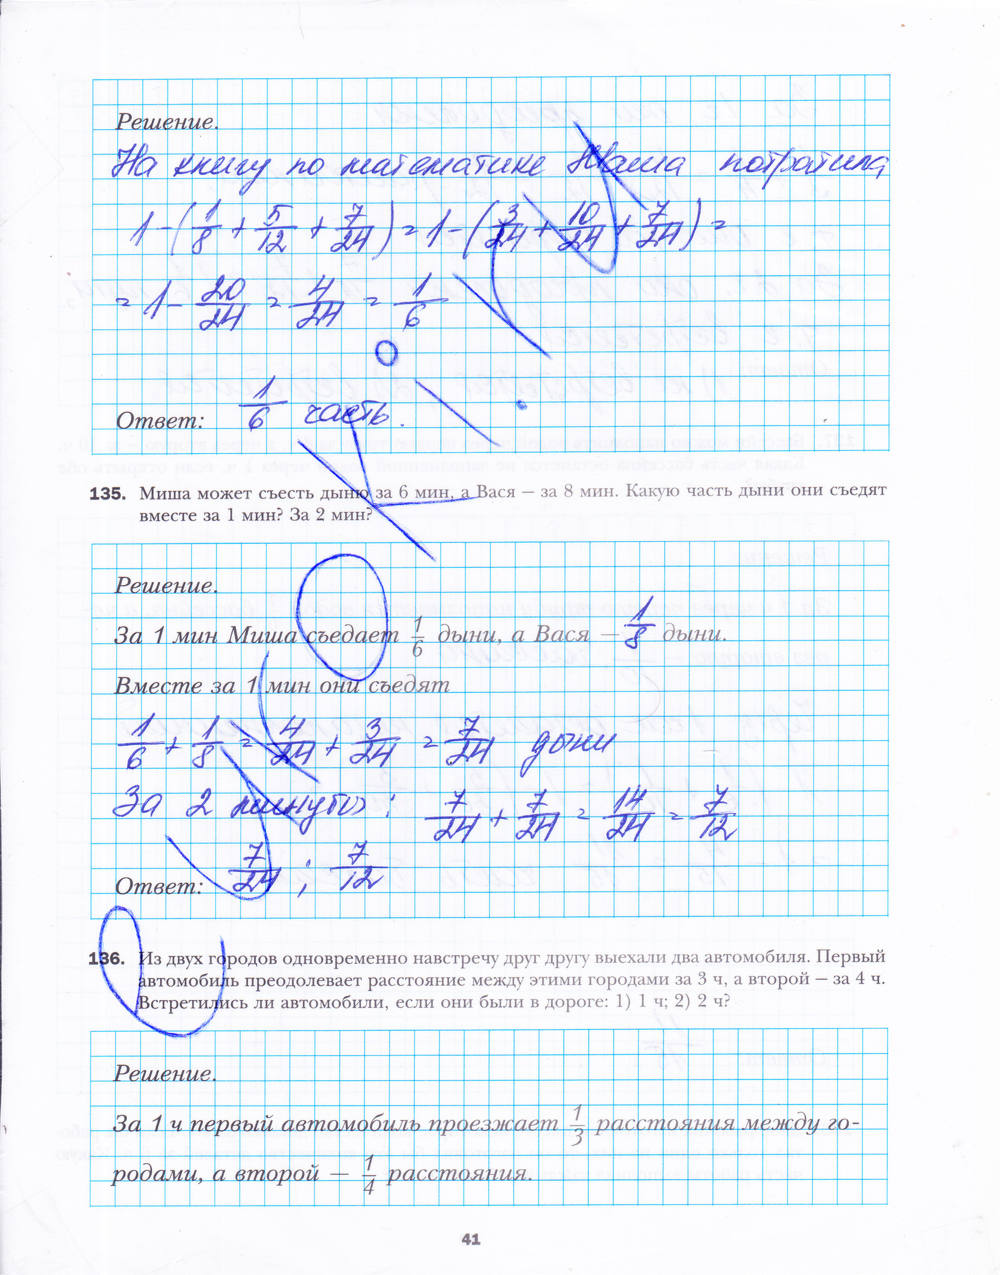 Решение.
На книгу по математике Маша потратила
1 - (1/8 + 5/12 + 7/24) = 1 - (3/24 + 10/24 + 7/24) =
= 1 - 20/24 = 4/24 = 1/6
Ответ: 1/6 часть.
135. Миша может съесть дыню за 6 мин, а Вася – за 8 мин. Какую часть дыни они съедят
вместе за 1 мин? За 2 мин?
Решение.
За 1 мин Миша съедает 1/6 дыни, а Вася – 1/8 дыни.
Вместе за 1 мин они съедят
1/6 + 1/8 = 4/24 + 3/24 = 7/24 дыни
За 2 минуты: 7/24 + 7/24 = 14/24 = 7/12
Ответ: 7/24 ; 7/12
136. Из двух городов одновременно навстречу друг другу выехали два автомобиля. Первый
автомобиль преодолевает расстояние между этими городами за 3 ч, а второй – за 4 ч.
Встретились ли автомобили, если они были в дороге: 1) 1 ч; 2) 2 ч?
Решение.
За 1 ч первый автомобиль проезжает 1/3 расстояния между го-
родами, а второй – 1/4 расстояния.
41